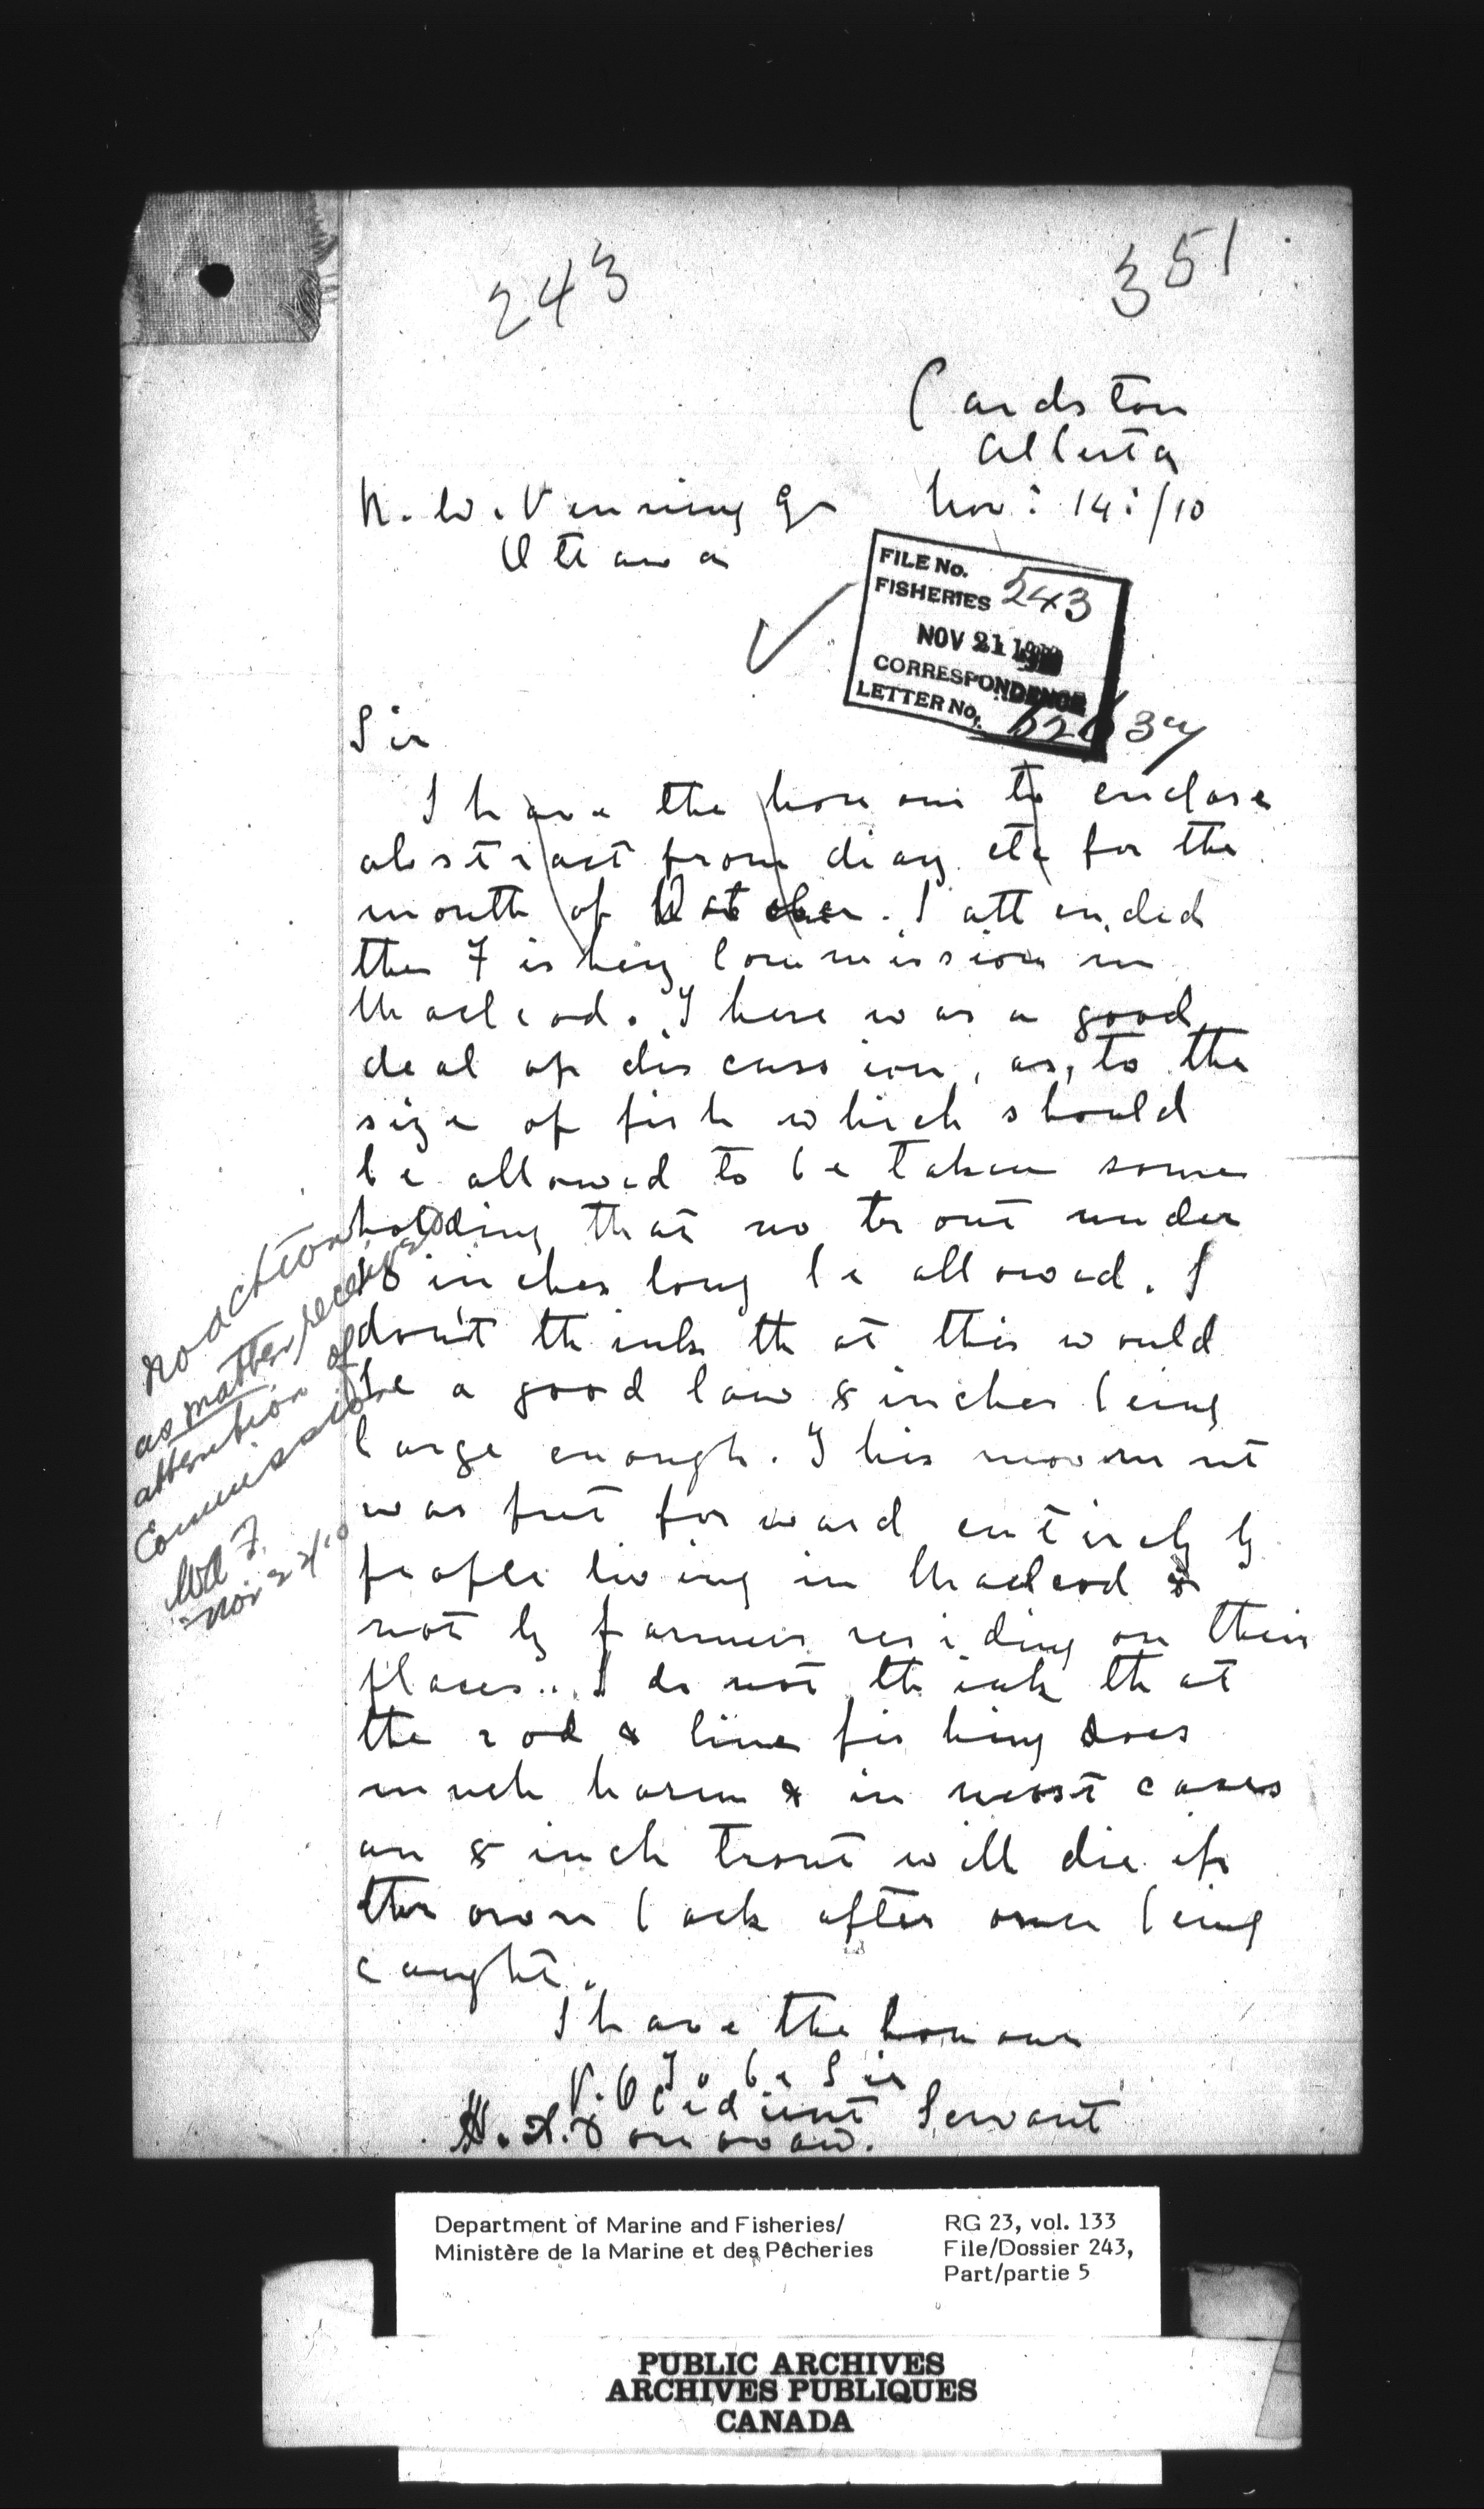 243
351
Cardston
Alberta
R. W. Venning Esq Nov: 14:/10
Ottawa
FILE No.
FISHERIES 243
NOV 21
CORRESPONDENCE
LETTER No.
Sir
I have the honour to enclose
abstract from diary etc for the
month of October. I attended
the Fishery Commission in
Macleod. There was a good
deal of discussion, as, to the
size of fish which should
be allowed to be taken some
holding that no trout under
inches long be allowed. I
don't think that this would
be a good law 8 inches being
large enough. This movemnt
was put forward entirely by
people living in Macleod &
not by farmers residing on their
places. I do not think that
the rod & line fishing does
much harm & in most cases
an 8 inch trout will die if
thrown back after once being
caught.
I have the honour
To be Sir
Y. Obedient Servant
Donovan.
no action
as matter receiving
attention of
Commission
Nov 22/10
Department of Marine and Fisheries/
Ministère de la Marine et des Pêcheries
RG 23, vol. 133
File/Dossier 243,
Part/partie 5
PUBLIC ARCHIVES
ARCHIVES PUBLIQUES
CANADA